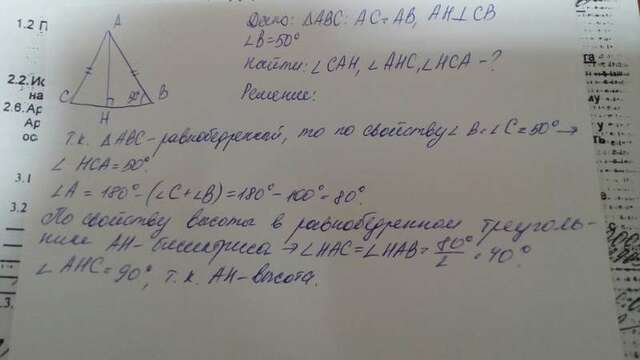 1.2 П
A
C
B
50°
H
Дано: △ABC: AC=AB, AH⊥CB
∠B=50°
Найти: ∠CAH, ∠AHC, ∠HCA-?
Решение:
2.2. Ис
на
2.6. Ар
Ар
ос
3.1
3.2
Т.к. △ABC-равнобедренный, то по свойству ∠B=∠C=50° →
∠HCA=50°.
∠A = 180°-(∠C+∠B)=180°-100°=80°.
По свойству высоты в равнобедренном треуголь-
нике AH-биссектриса → ∠HAC=∠HAB=80°/2=40°.
∠AHC=90°, т.к. AH-высота.